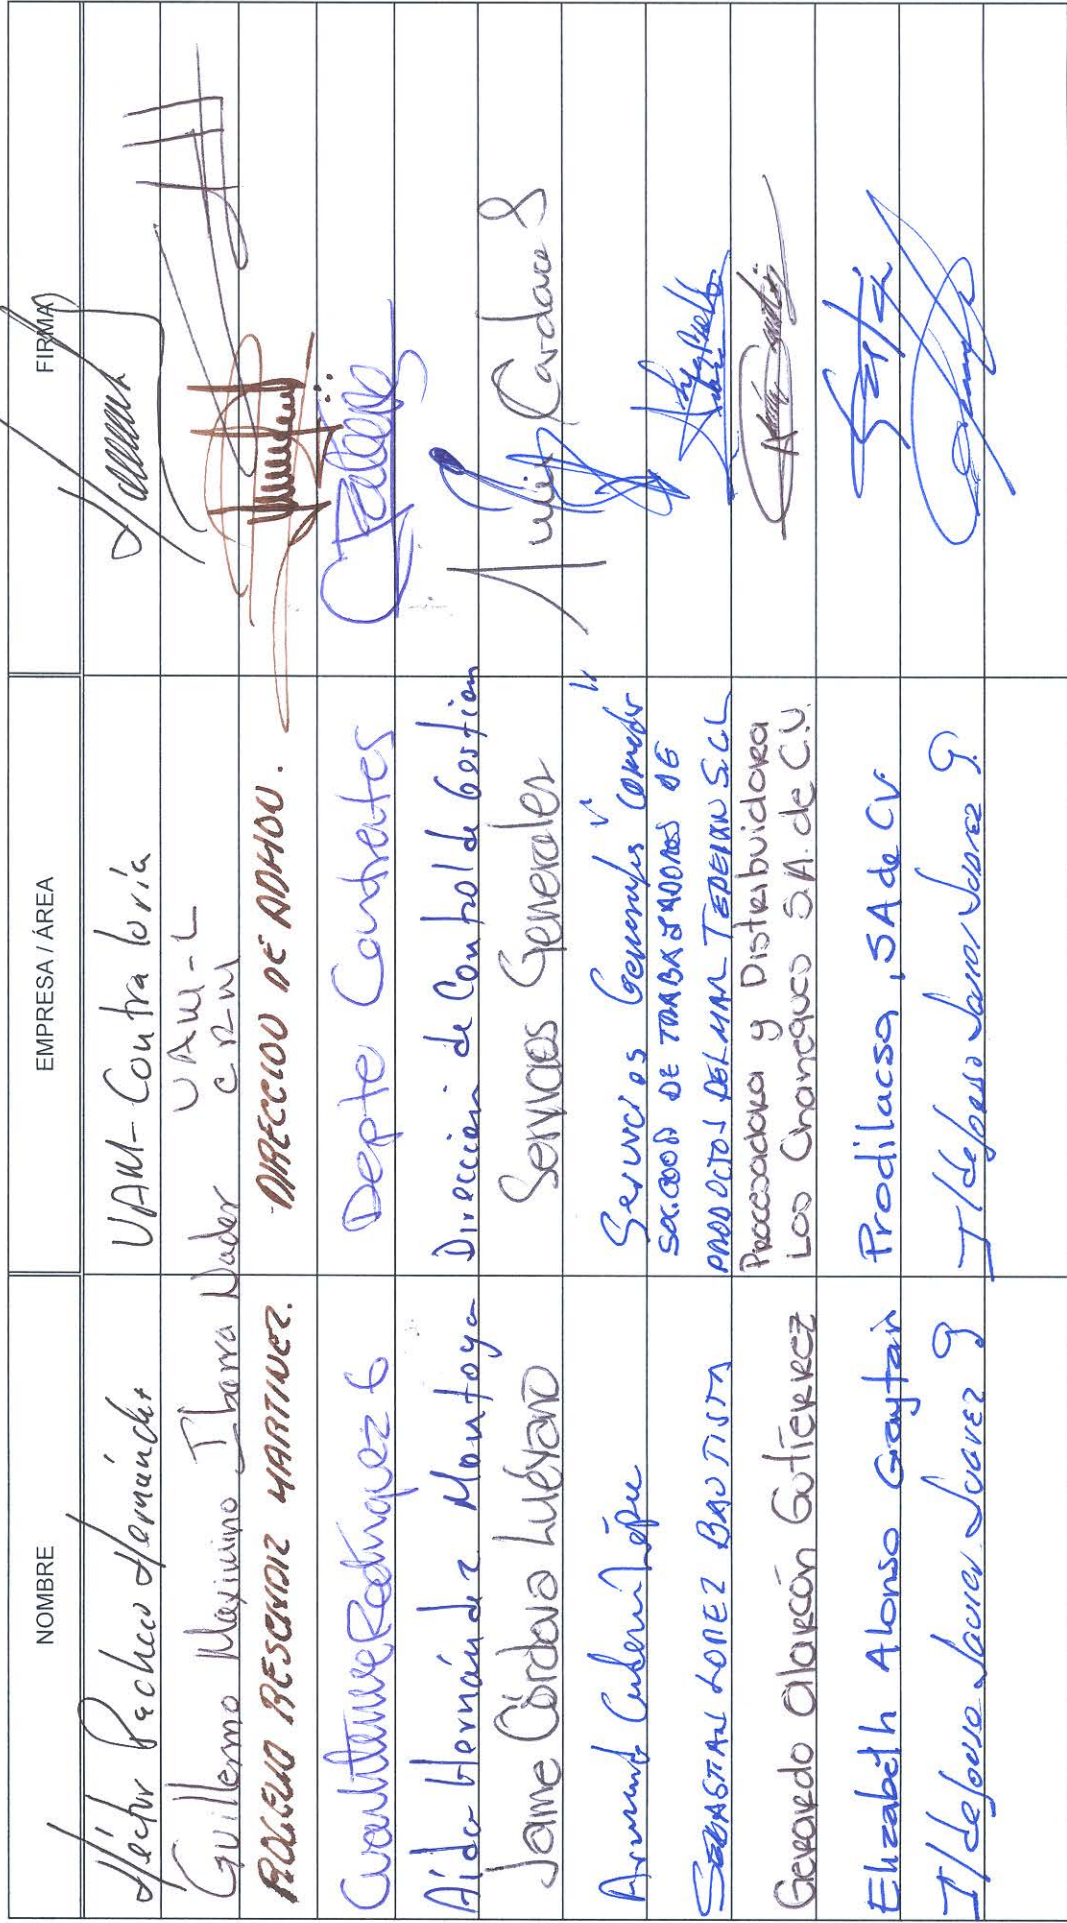 NOMBRE EMPRESA / ÁREA FIRMA
Héctor Pacheco Hernández UAM-Contraloría
Guillermo Maximino Ibarra Nader UAM-L
CRM
ROGELIO RESENDIZ MARTINEZ. DIRECCIOU DE ADMOU.
Cuauhtemoc Rodriguez G Depto Contratos
Aída Hernández Montoya Dirección de Control de Gestion
Jaime Córdova Luévano Servicios Generales Julio Cardona S
Servicios Generales Comedor
SEBASTIAN LOPEZ BAUTISTA SOC. COOP DE TRABAJADORES DE
PRODUCTOS DEL MAR TEPEPAN S.C.L
Gerardo Alarcón Gutiérrez Procesadora y Distribuidora
Los Chaneques S.A. de C.V.
Elizabeth Alonso Gaytán Prodilacsa, SA de CV
Ildefonso Javier Juarez G Ildefonso Javier Juarez G.